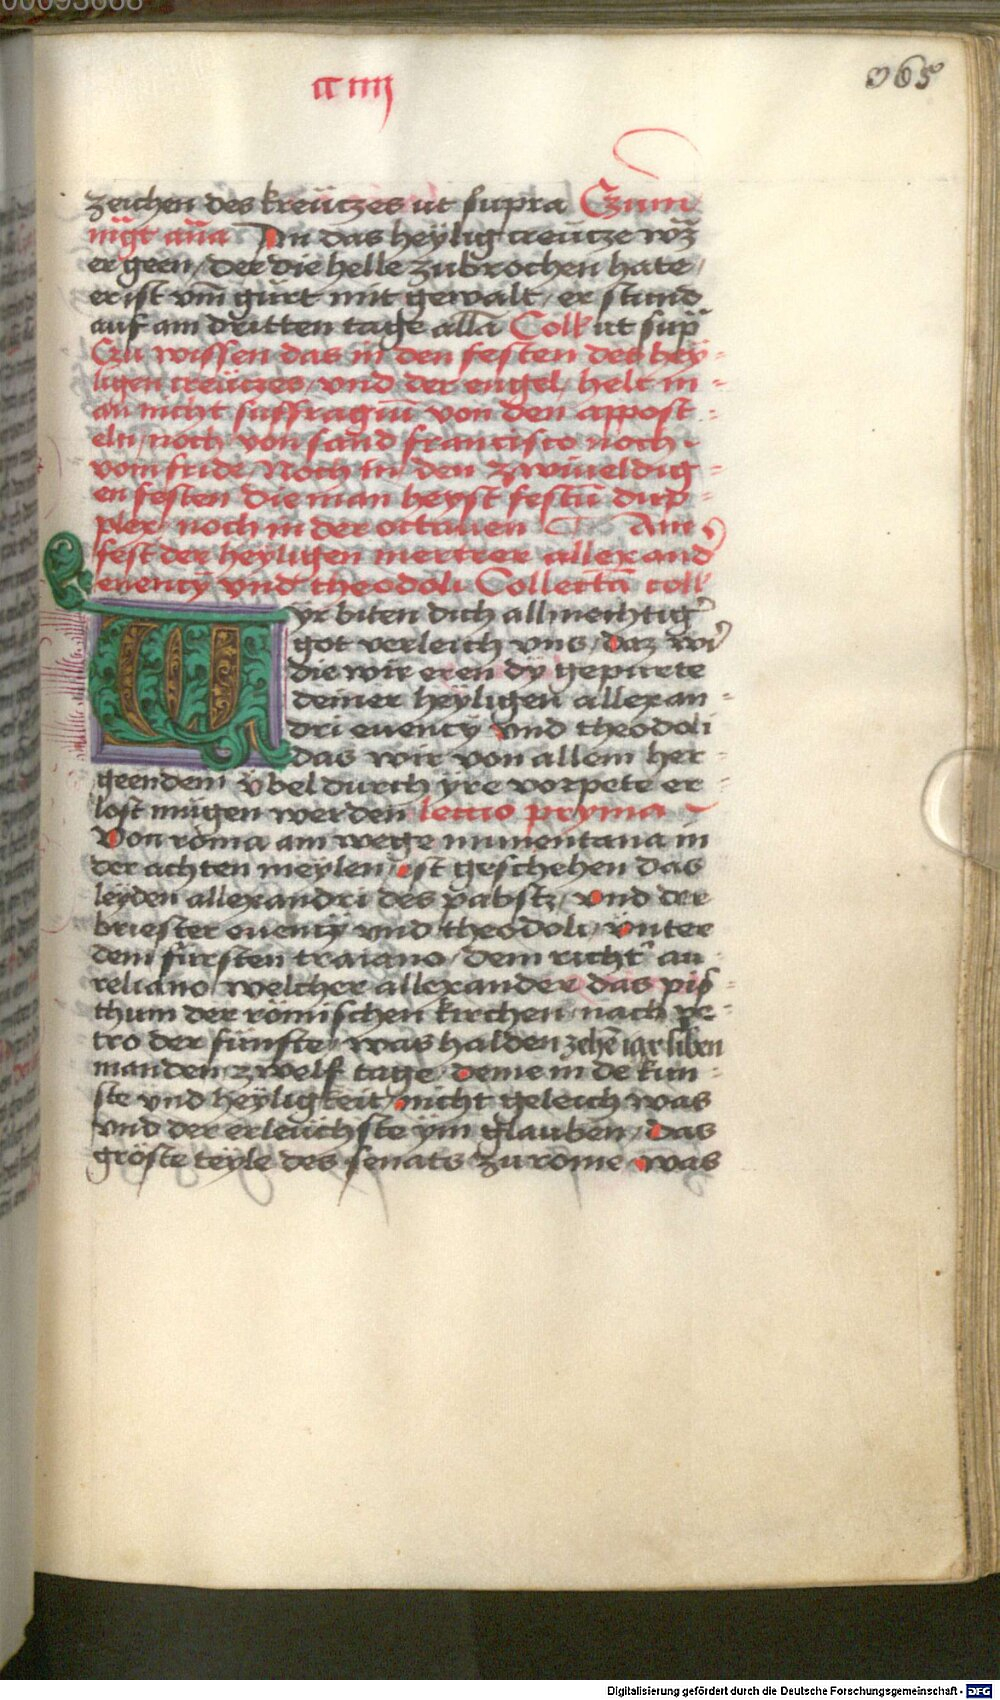 00093668
365
cc iiij
zeichen des kreüczes ut supra Czum
nügt añа An das heÿlig creücze wz̄
er geen / der die helle zubrochen hate /
er ist vm̄ gürt mit gewalt / er stund
auf am dritten tage all̄a Coll̄ ut sup̄
Czu wissen das in den festen des heÿ-
ligen creüczes / vnd der engel / helt m-
an nicht suffragiū von den appost-
eln / noch von sand francisco noch
vom fride / Noch in den zwiueldig-
en festen die man heyst festū dup-
plex / noch in der octauen Am
fest der heÿligen mertrer allexand'
euencÿ vnd theodoli Collecta coll̄
Wyr biten dich allmechtig'
got verleich vns / daz wi'
die wir eren dÿ gepurte
deiner heÿligen allexan-
dri euencÿ vnd theodoli
das wir von allem her-
geendem v̈bel durch ÿre vorpete er-
lost mügen werden lectio pryma
Von roma am wege numentana in
der achten meÿlen / ist geschehen das
leÿden allexandri des pabstz / vnd der
briester euencÿ vnd theodoli / v̈nter
dem fürsten traiano / dem richt' au-
reliano / welcher allexander das pis-
thum der römischen kirchen / nach pe-
tro der fünfte / was halden zehē iar siben
manden zwelf tage / deme in de kun-
ste vnd heÿligkeit / nicht geleich was
vnd der erleüchste ÿm glauben / das
gröste teÿle des senats zu rome / was
Digitalisierung gefördert durch die Deutsche Forschungsgemeinschaft - DFG